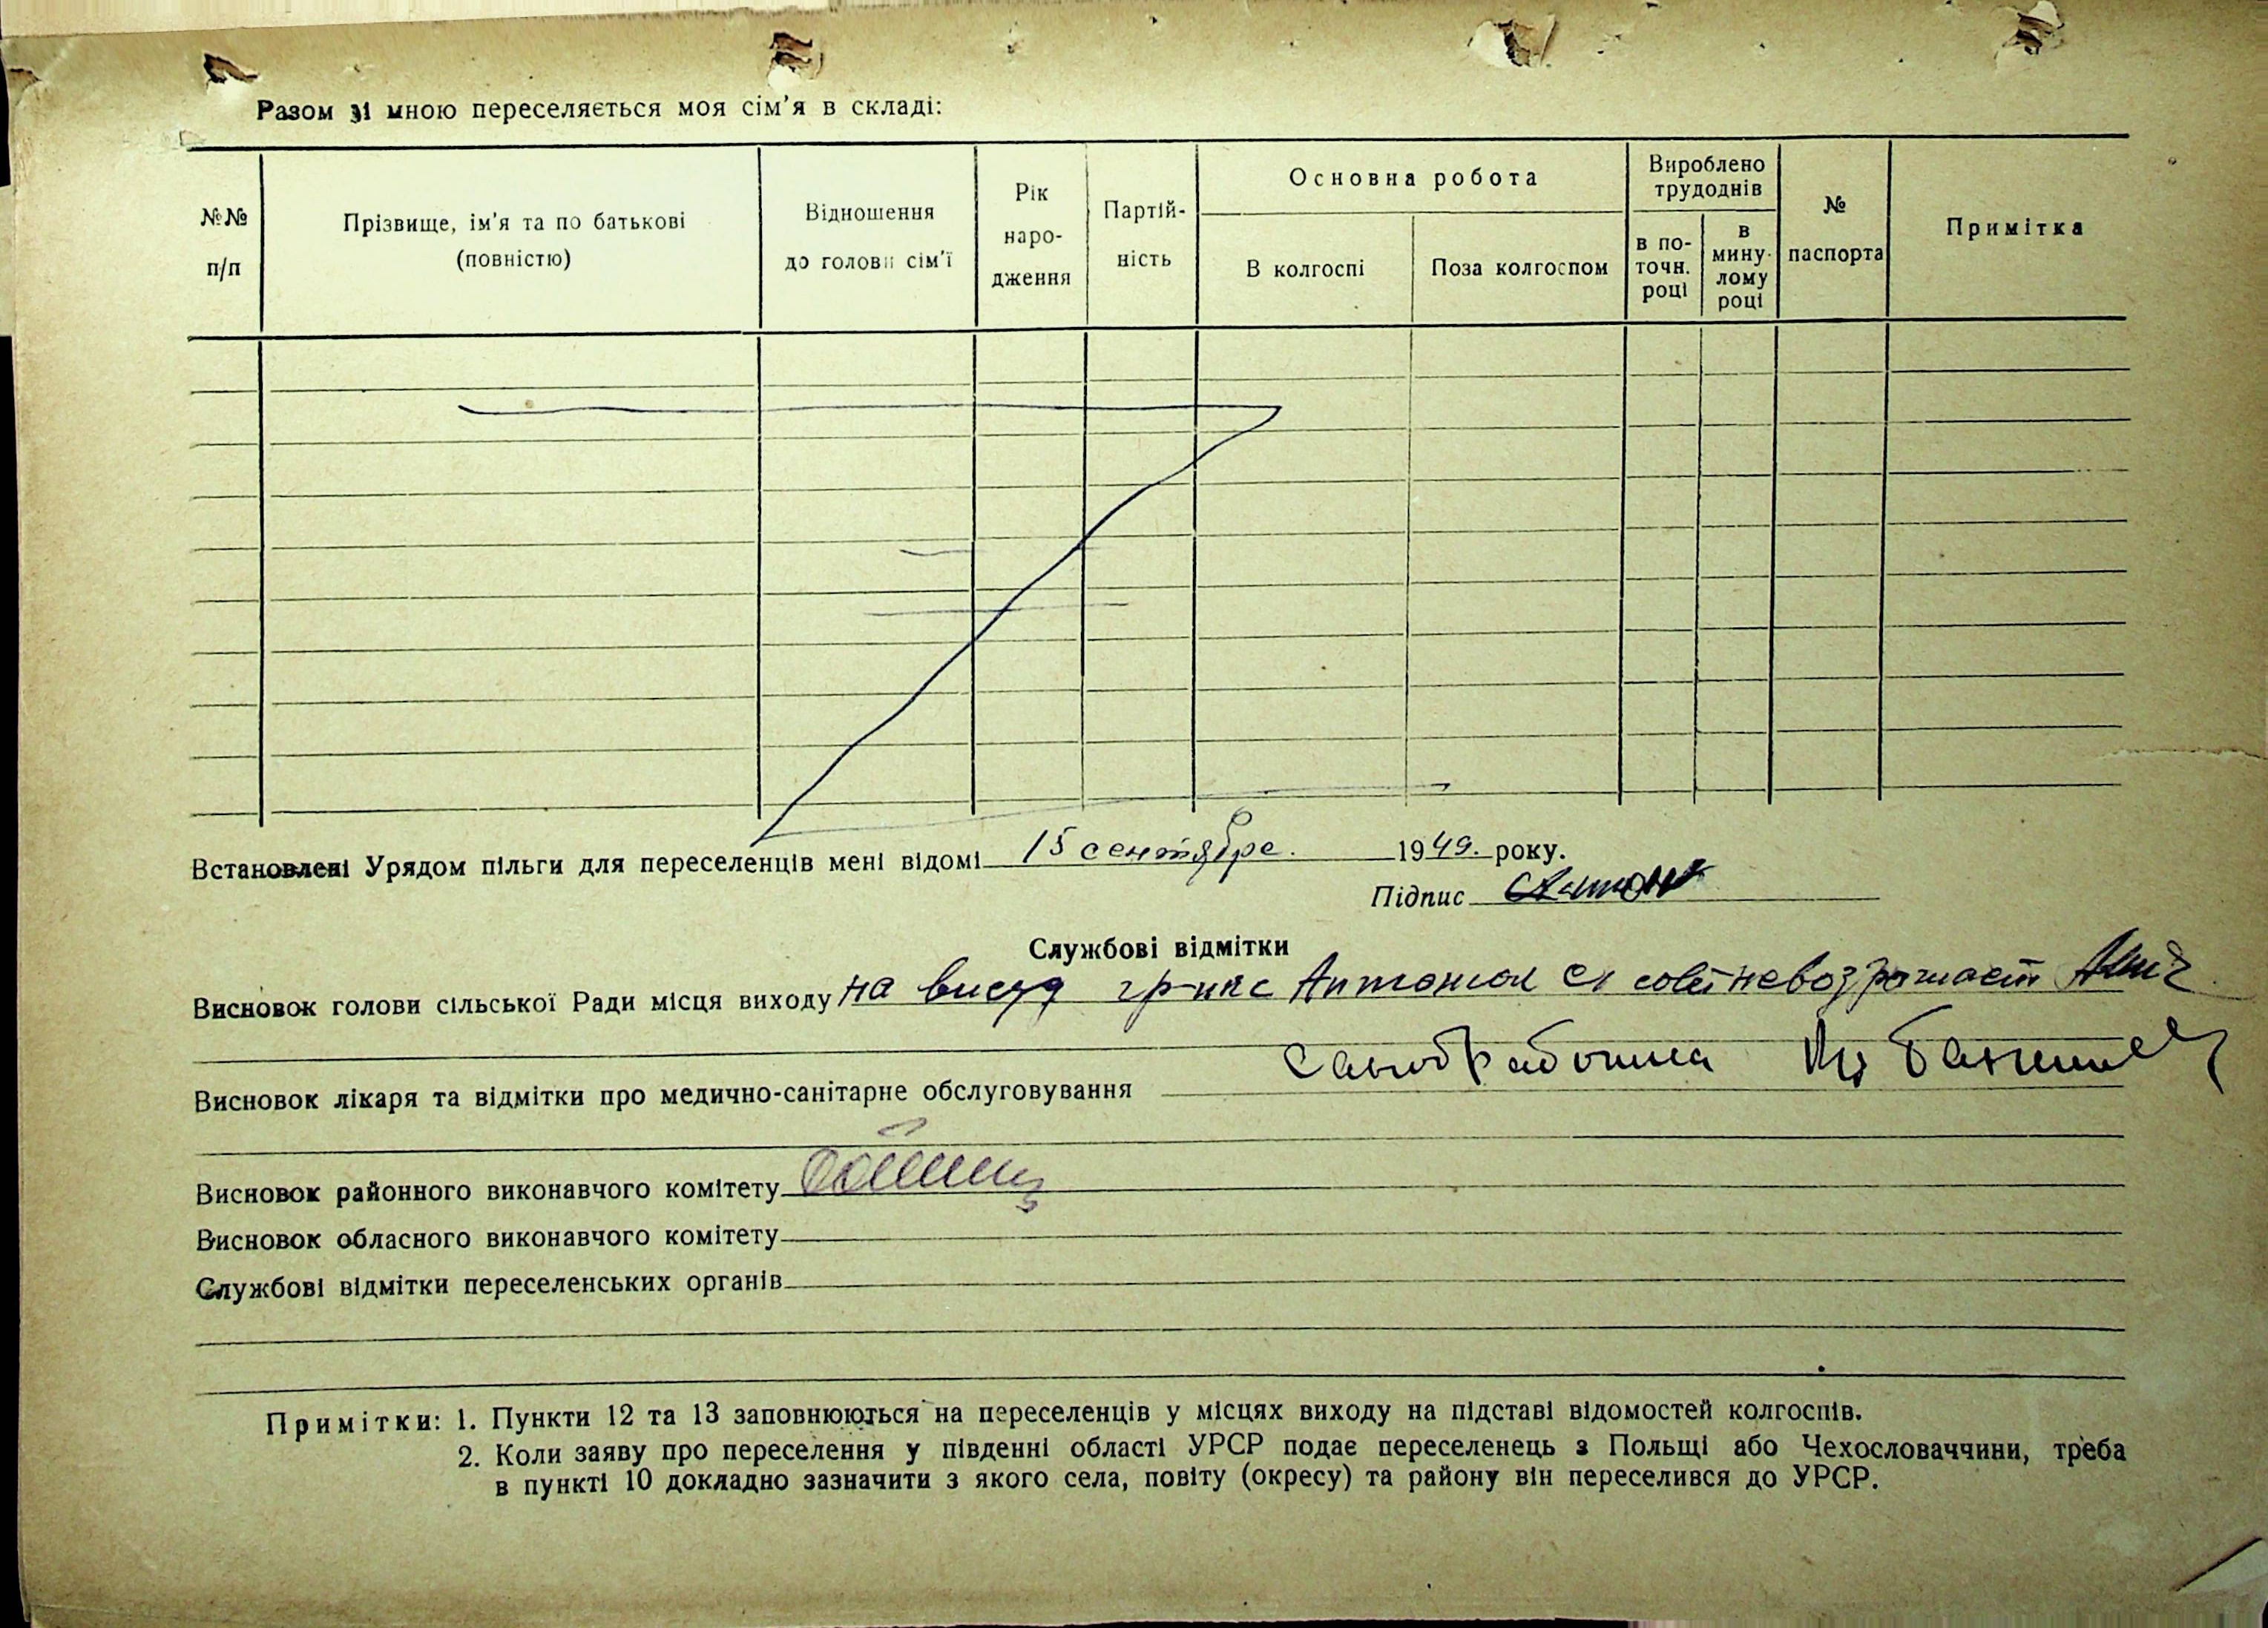 Разом зі мною переселяється моя сім'я в складі:
№№ п/п
Прізвище, ім'я та по батькові (повністю)
Відношення до голови сім'ї
Рік наро-дження
Партій-ність
Основна робота
В колгоспі
Поза колгоспом
Вироблено трудоднів
в по-точн. році
в мину-лому році
№ паспорта
Примітка
Встановлені Урядом пільги для переселенців мені відомі 15 сентября. 1949. року.
Підпис
Службові відмітки
Висновок голови сільської Ради місця виходу на виезд гр-нке сов невозражает
Висновок лікаря та відмітки про медично-санітарне обслуговування
Висновок районного виконавчого комітету
Висновок обласного виконавчого комітету
Службові відмітки переселенських органів
Примітки: 1. Пункти 12 та 13 заповнюються на переселенців у місцях виходу на підставі відомостей колгоспів.
2. Коли заяву про переселення у південні області УРСР подає переселенець з Польщі або Чехословаччини, треба
в пункті 10 докладно зазначити з якого села, повіту (окресу) та району він переселився до УРСР.